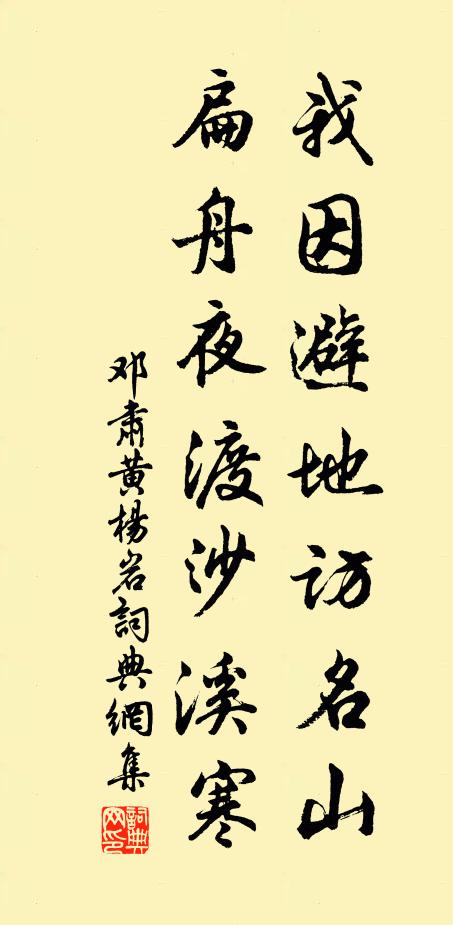 我因避地访名山
扁舟夜渡沙溪寒
邓肃黄杨岩詞典網集
詞典网印